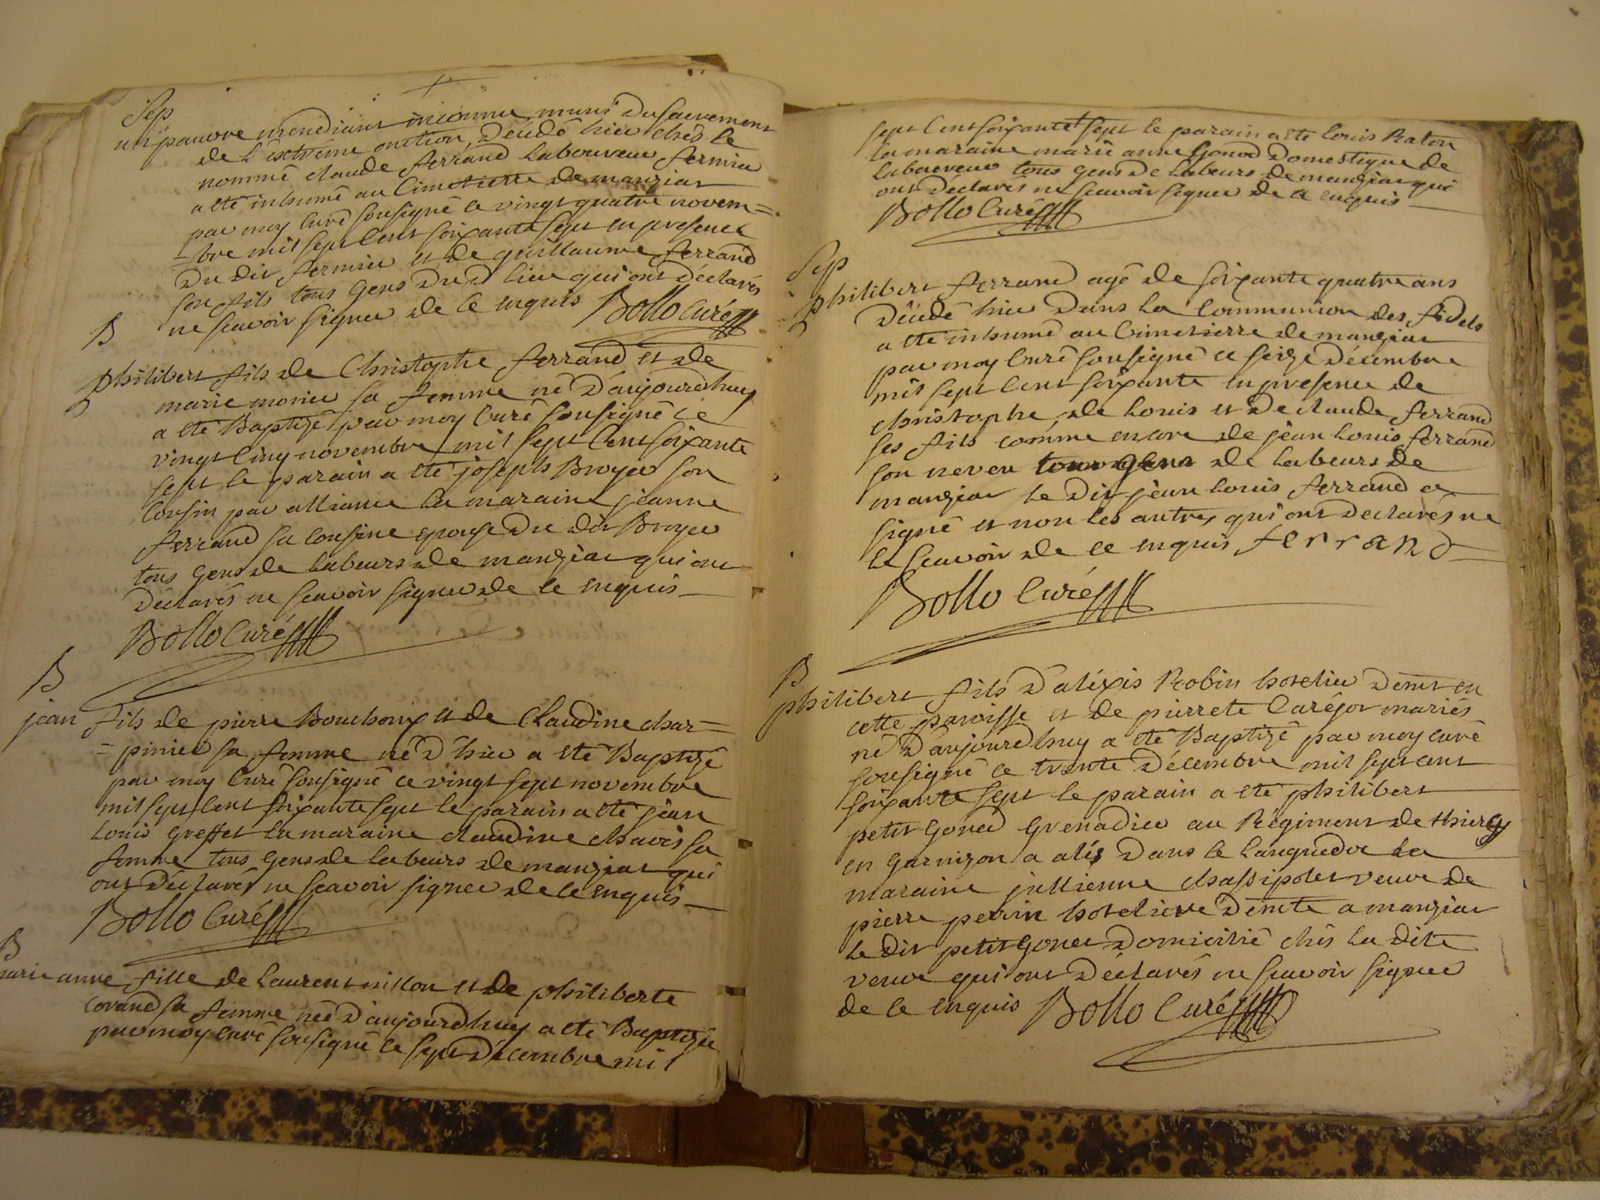 Sep
un pauvre mendiant inconnu muni du sacrement
de l'extrême onction, décédé hier chés le
nommé claude ferrand laboureur fermier
a été inhumé au Cimetierre de manziat
par moy curé sousigné ce vingt quatre novem=
=bre mil sept cent soixante sept en presence
du dit fermier et de guillaume ferrand
son fils tous gens dud lieu qui ont déclarés
ne scavoir signer de ce enquis Bollo Curé
B
philibert fils de Christophe ferrand et de
marie monier sa femme né d'aujourdhuy
a été Baptizé par moy curé sousigné ce
vingt cinq novembre mil sept cent soixante
sept le parain a été joseph Broyer son
cousin par alliance la maraine jeanne
ferrand sa cousine epouse du dit Broyer
tous gens de labeurs de manziat qui ont
déclarés ne scavoir signer de ce enquis
Bollo Curé
B
jean fils de pierre Bouchoux et de Claudine char=
=pinier sa femme né d'hier a été Baptizé
par moy curé sousigné ce vingt sept novembre
mil sept cent soixante sept le parain a été jean
Louis greffet la maraine claudine chavis sa
femme tous gens de labeurs de manziat qui
ont déclarés ne scavoir signer de ce enquis
Bollo Curé
B
marie anne fille de Laurent nillon et de philiberte
sa femme née d'aujourdhuy a été Baptizée
par moy curé sousigné ce sept décembre mil
sept cent soixante sept le parain a été Louis Raton
la maraine marie anne gonod domestique de
laboureur tous gens de labeurs de manziat qui
ont declarés ne scavoir signer de ce enquis
Bollo Curé
Sep
philibert ferrand agé de soixante quatre ans
décédé hier dans la Communion des fidels
a été inhumé au Cimetierre de manziat
par moy curé sousigné ce seize decembre
mil sept cent soixante en presence de
christophe, de Louis et de claude ferrand
ses fils comme encore de jean louis ferrand
son neveu tous gens de labeurs de
manziat le dit jean louis ferrand a
signé et non les autres qui ont declarés ne
le scavoir de ce enquis ferrand
Bollo Curé
B
philibert fils d'aléxis Robin hotelier demt en
cette paroisse et de pierrete Caréjot mariés
né d'aujourdhuy a été Baptizé par moy curé
sousigné ce trente décembre mil sept cent
soixante sept le parain a été philibert
petit goned grenadier au Régiment de
en garnizon a alés dans le languedoc la
maraine jullienne chassipolet veuve de
pierre perrin hoteliere demte a manziat
le dit petit gonet domicilié chés la dite
veuve qui ont déclarés ne scavoir signer
de ce enquis Bollo Curé